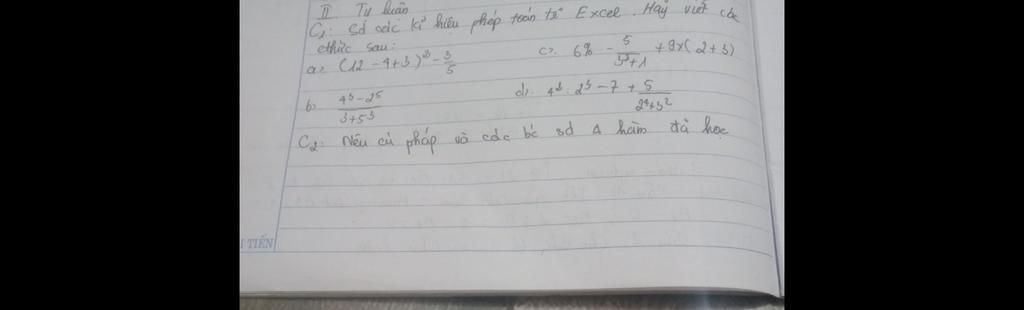 II Tự luận
C1: Sd các kí hiệu phép toán từ Excel. Hãy viết các
thức sau:
a> (12 - 4 + 3)³ - 3/5
c>. 6% - 5/(5³+1) + 9x(2+3)
b> (4³ - 2⁵)/(3+5³)
d>. 4²: 2³ - 7 + 5/(2⁴+3²)
C2: Nêu cú pháp và các bc sd 4 hàm đã học
I TIẾN